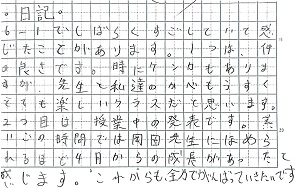 。日記。
6-1でしばらくすごしていて感
じたことがあります。1つは、仲
の良さです。時にケンカもありま
すが、先生と私達のかべもうすく
とても楽しいクラスだと思います。
2つ目は、授業中の発表です。算
の時間では岡田先生にほめら
れる目で4月からの成長があったと
感じます。これからも、全力でがんばっていきたいです